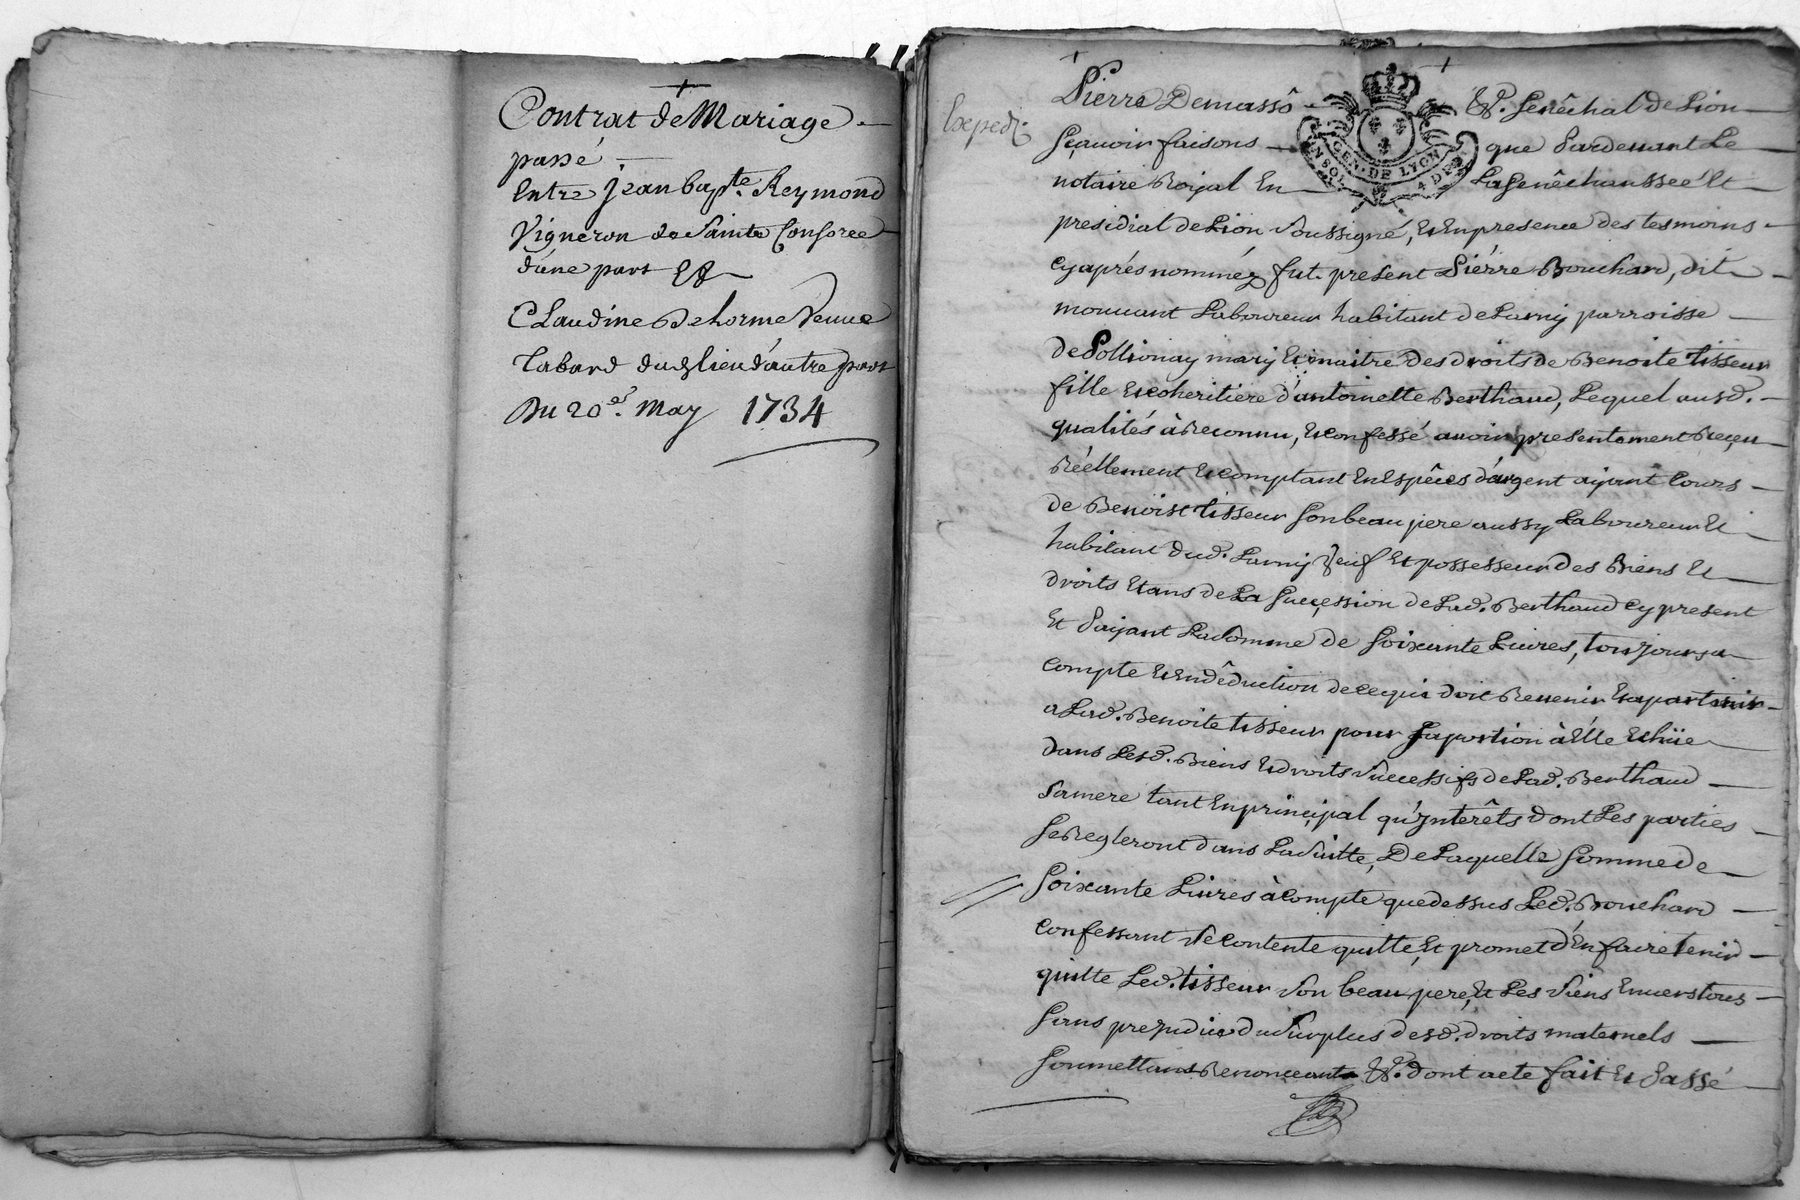 Contrat de Mariage
passé
Entre Jean bapte. Reymond
Vigneron de Sainte Consorce
d'une part Et
Claudine Delorme Veuve
Cabard dud. lieu d'autre part
Du 20e. May 1734
Expedé.
Pierre Demassô &a. Senêchal de Lion
Sçavoir faisons que Pardevant Le
notaire Roÿal En La Senêchaussée Et
GEN. DE LYON
4 DE
presidial de Lion Soussigné, Et En presence des tesmoins
cy aprés nomméz fut present Piérre Bouchard, dit
mouvant Laboureur habitant de Larny parroisse
de Pollionay mary Et maitre des droits de Benoite tisseur
fille Et coheritiere d'antoinette Berthaud, Lequel ausd.
qualités à Reconnu, Et confessé avoir presentement Reçeu
Réellement Et comptant En Espêces d'argent aÿant Cours
de Benoist tisseur son beau pere aussy Laboureur Et
habitant dud. Larny Veuf Et possesseur des Biens Et
droits Etans de La Sucçession de Lad. Berthaud cy present
Et Paÿant La Somme de Soixante Livres, toujours a
compte Et En dêduction de ce qui doit Revenir Et apartenir
a Lad. Benoite tisseur pour sa portion à Elle Echüe
dans Lesd. Biens Et droits Successifs de Lad. Berthaud
Sa mere tant En prinçipal qu'Jnterêts dont Les parties
Se Regleront dans La Suitte, De Laquelle Somme de
Soixante Livres à compte que dessus Led. Bouchard
confessant Se contente quitte, Et promet d'En faire tenir
quitte Led. tisseur Son beau pere, Et Les Siens Envers tous
Sans prejudice du Surplus desd. droits maternels
Soumettans Renonceant &a. dont acte fait Et Passé